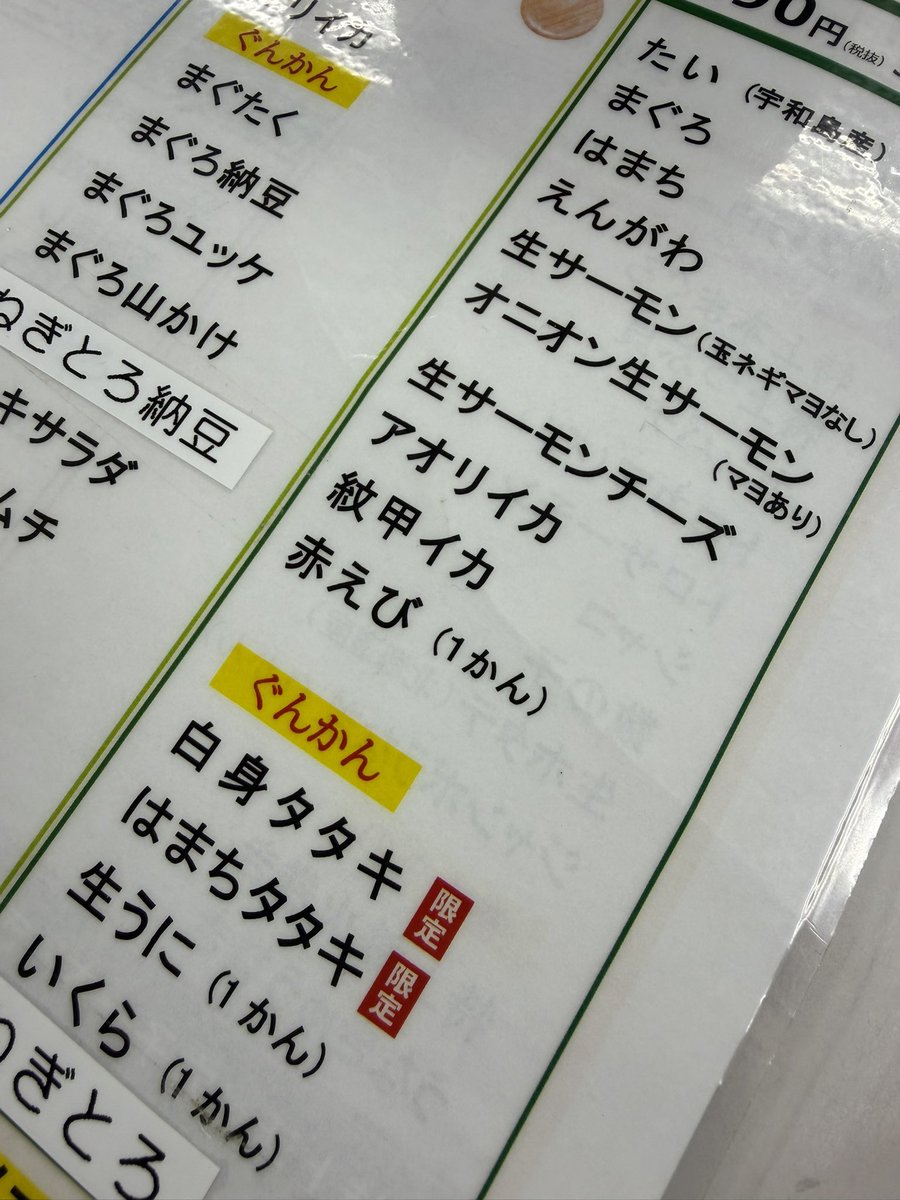 リイカ
ぐんかん
まぐたく
まぐろ納豆
まぐろユッケ
まぐろ山かけ
ねぎとろ納豆
キサラダ
ムチ
90円(税抜)
たい (宇和島産)
まぐろ
はまち
えんがわ
生サーモン(玉ネギマヨなし)
オニオン生サーモン
(マヨあり)
生サーモンチーズ
アオリイカ
紋甲イカ
赤えび (1かん)
ぐんかん
白身タタキ 限定
はまちタタキ 限定
生うに (1かん)
いくら (1かん)
ぎとろ